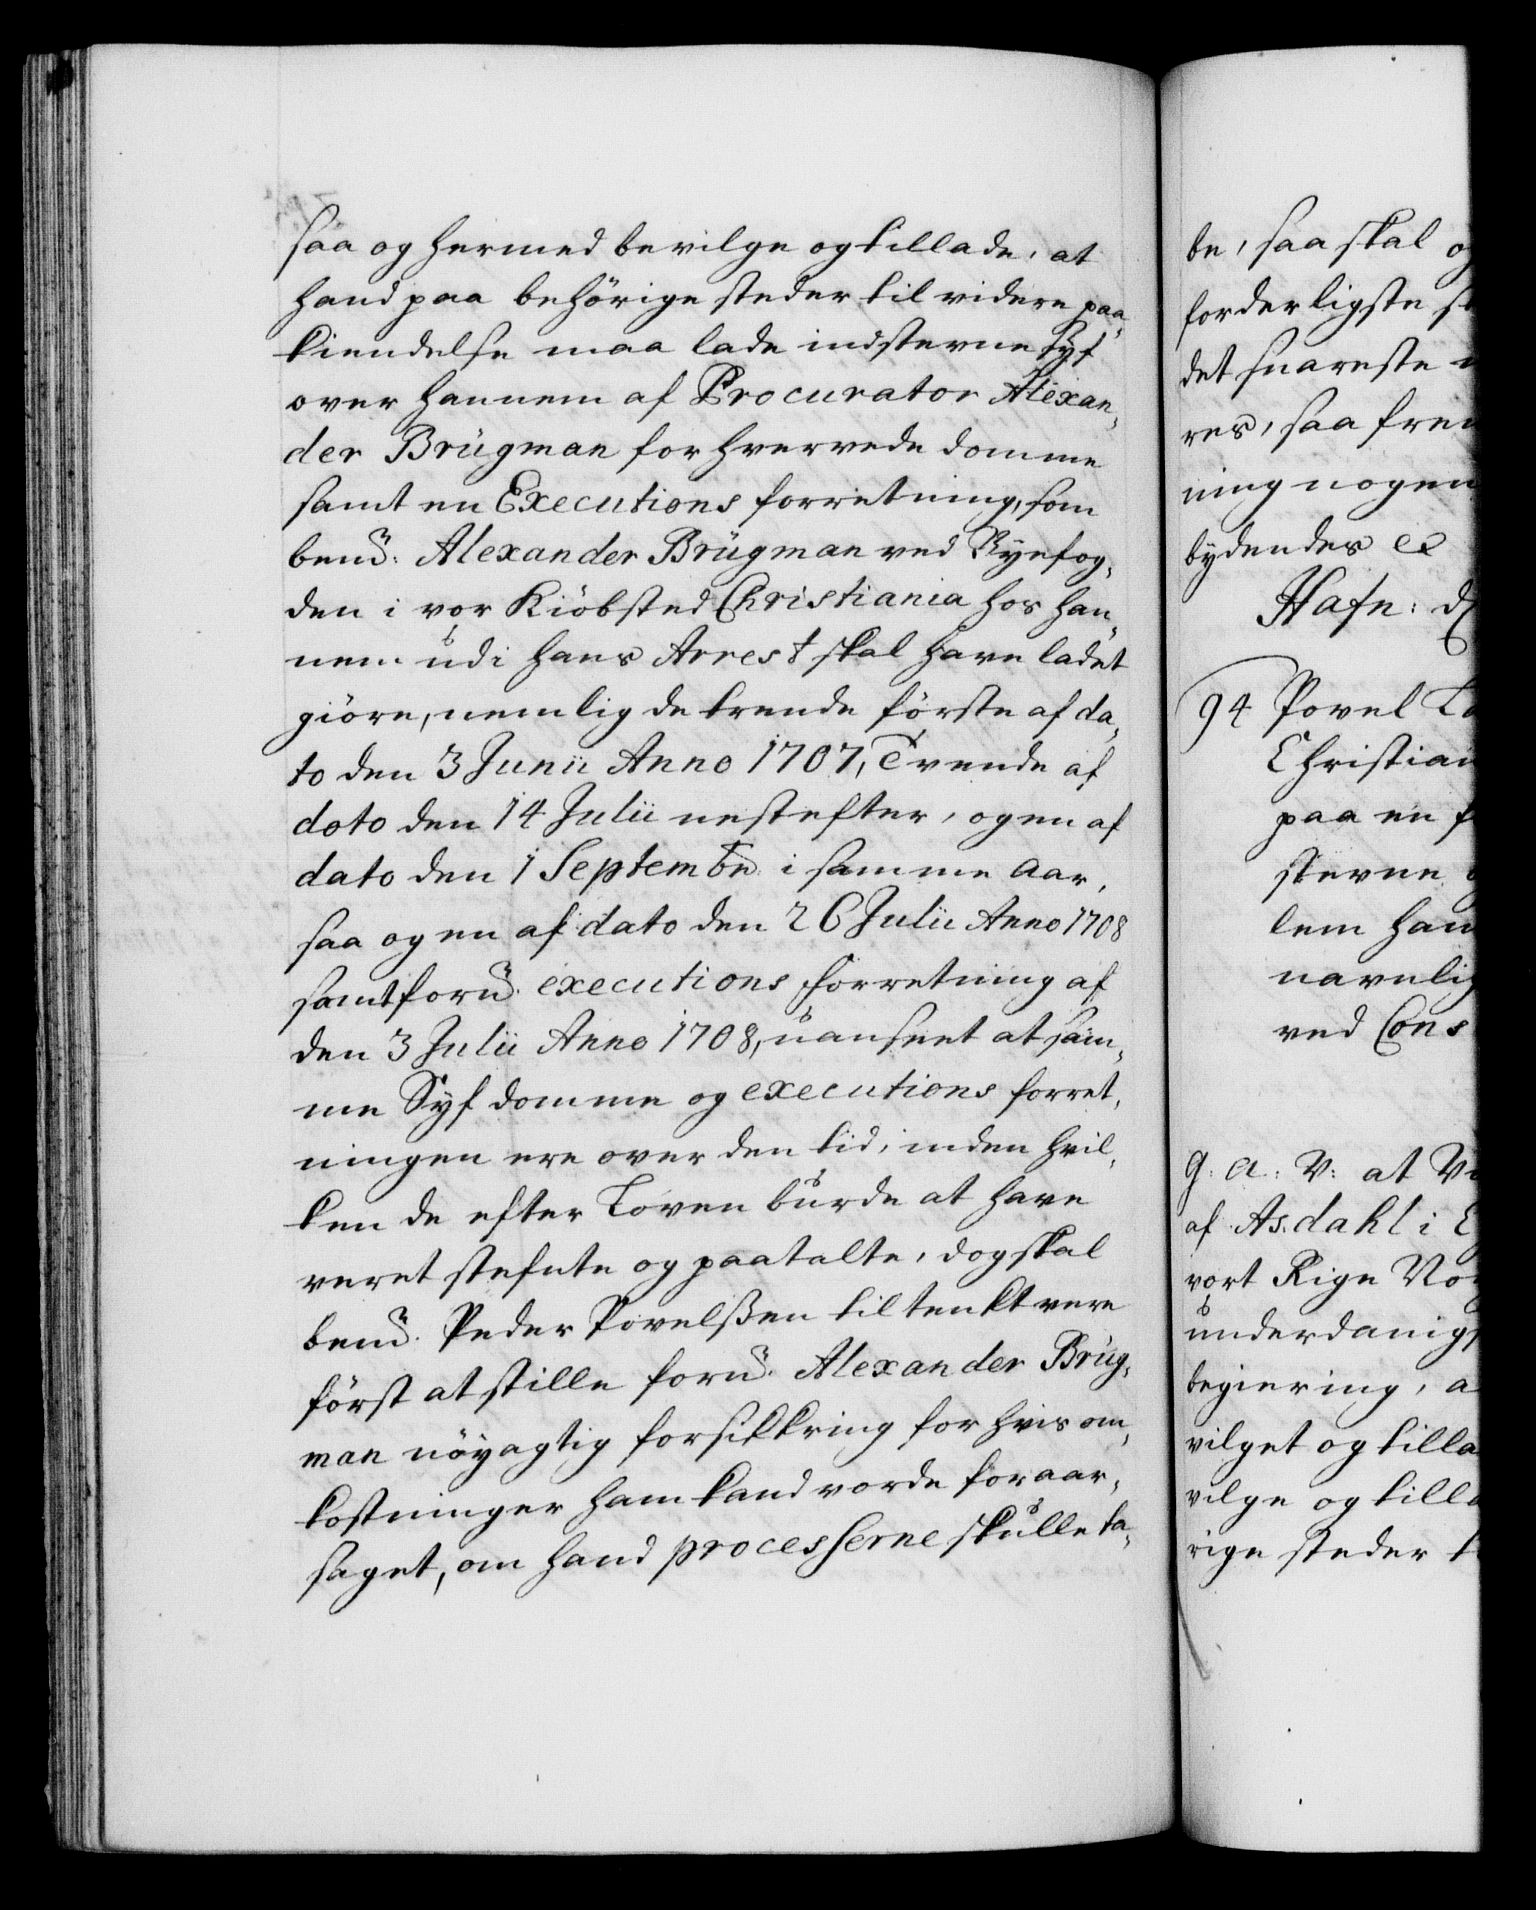 saa og hermed bevilge og tillade, at
hand paa behörige steder til videre paa-
kiendelse maa lade indstevne Syf
over hannem af Procurator Alexan-
der Brügman forhvervede domme
samt en Executions forretning, som
bemt: Alexander Brügman ved Byefog-
den i vor Kiöbsted Christiania hos han-
nem udi hans Arrest skal have ladet
giöre, nemlig de trende förste af da-
to den 3 Junii Anno 1707, Tvende af
doto den 14 Julii nestefter, og en af
dato den 1 Septembr. i samme Aar,
saa og en af dato den 26 Julii Anno 1708
samt fornt. executions forretning af
den 3 Julii Anno 1708, uanseet at sam-
me Syf domme og executions forret-
ningen ere over den tid, inden hvil-
ken de efter Loven burde at have
veret stefnte og paatalte, dog skal
bemt. Peder Povelßen tiltenkt vere
först at stille fornt. Alexander Brüg-
man nöyagtig forsikkring for hvis om-
kostninger ham kand vorde foraar-
saget, om hand processerne skulle ta-
be, saa skal og
forderligste
det snareste
res, saa frem
ning nogen
bydendes &
Hafn: d
94 Povel
Christian
paa en
stevne
lem han
navnlig
ved Cons
G: A: V: at Vi
af Asdahl i
vort Rige Nor
underdanigst
begiering, a
vilget og tilla
vilge og tilla
rige steder t